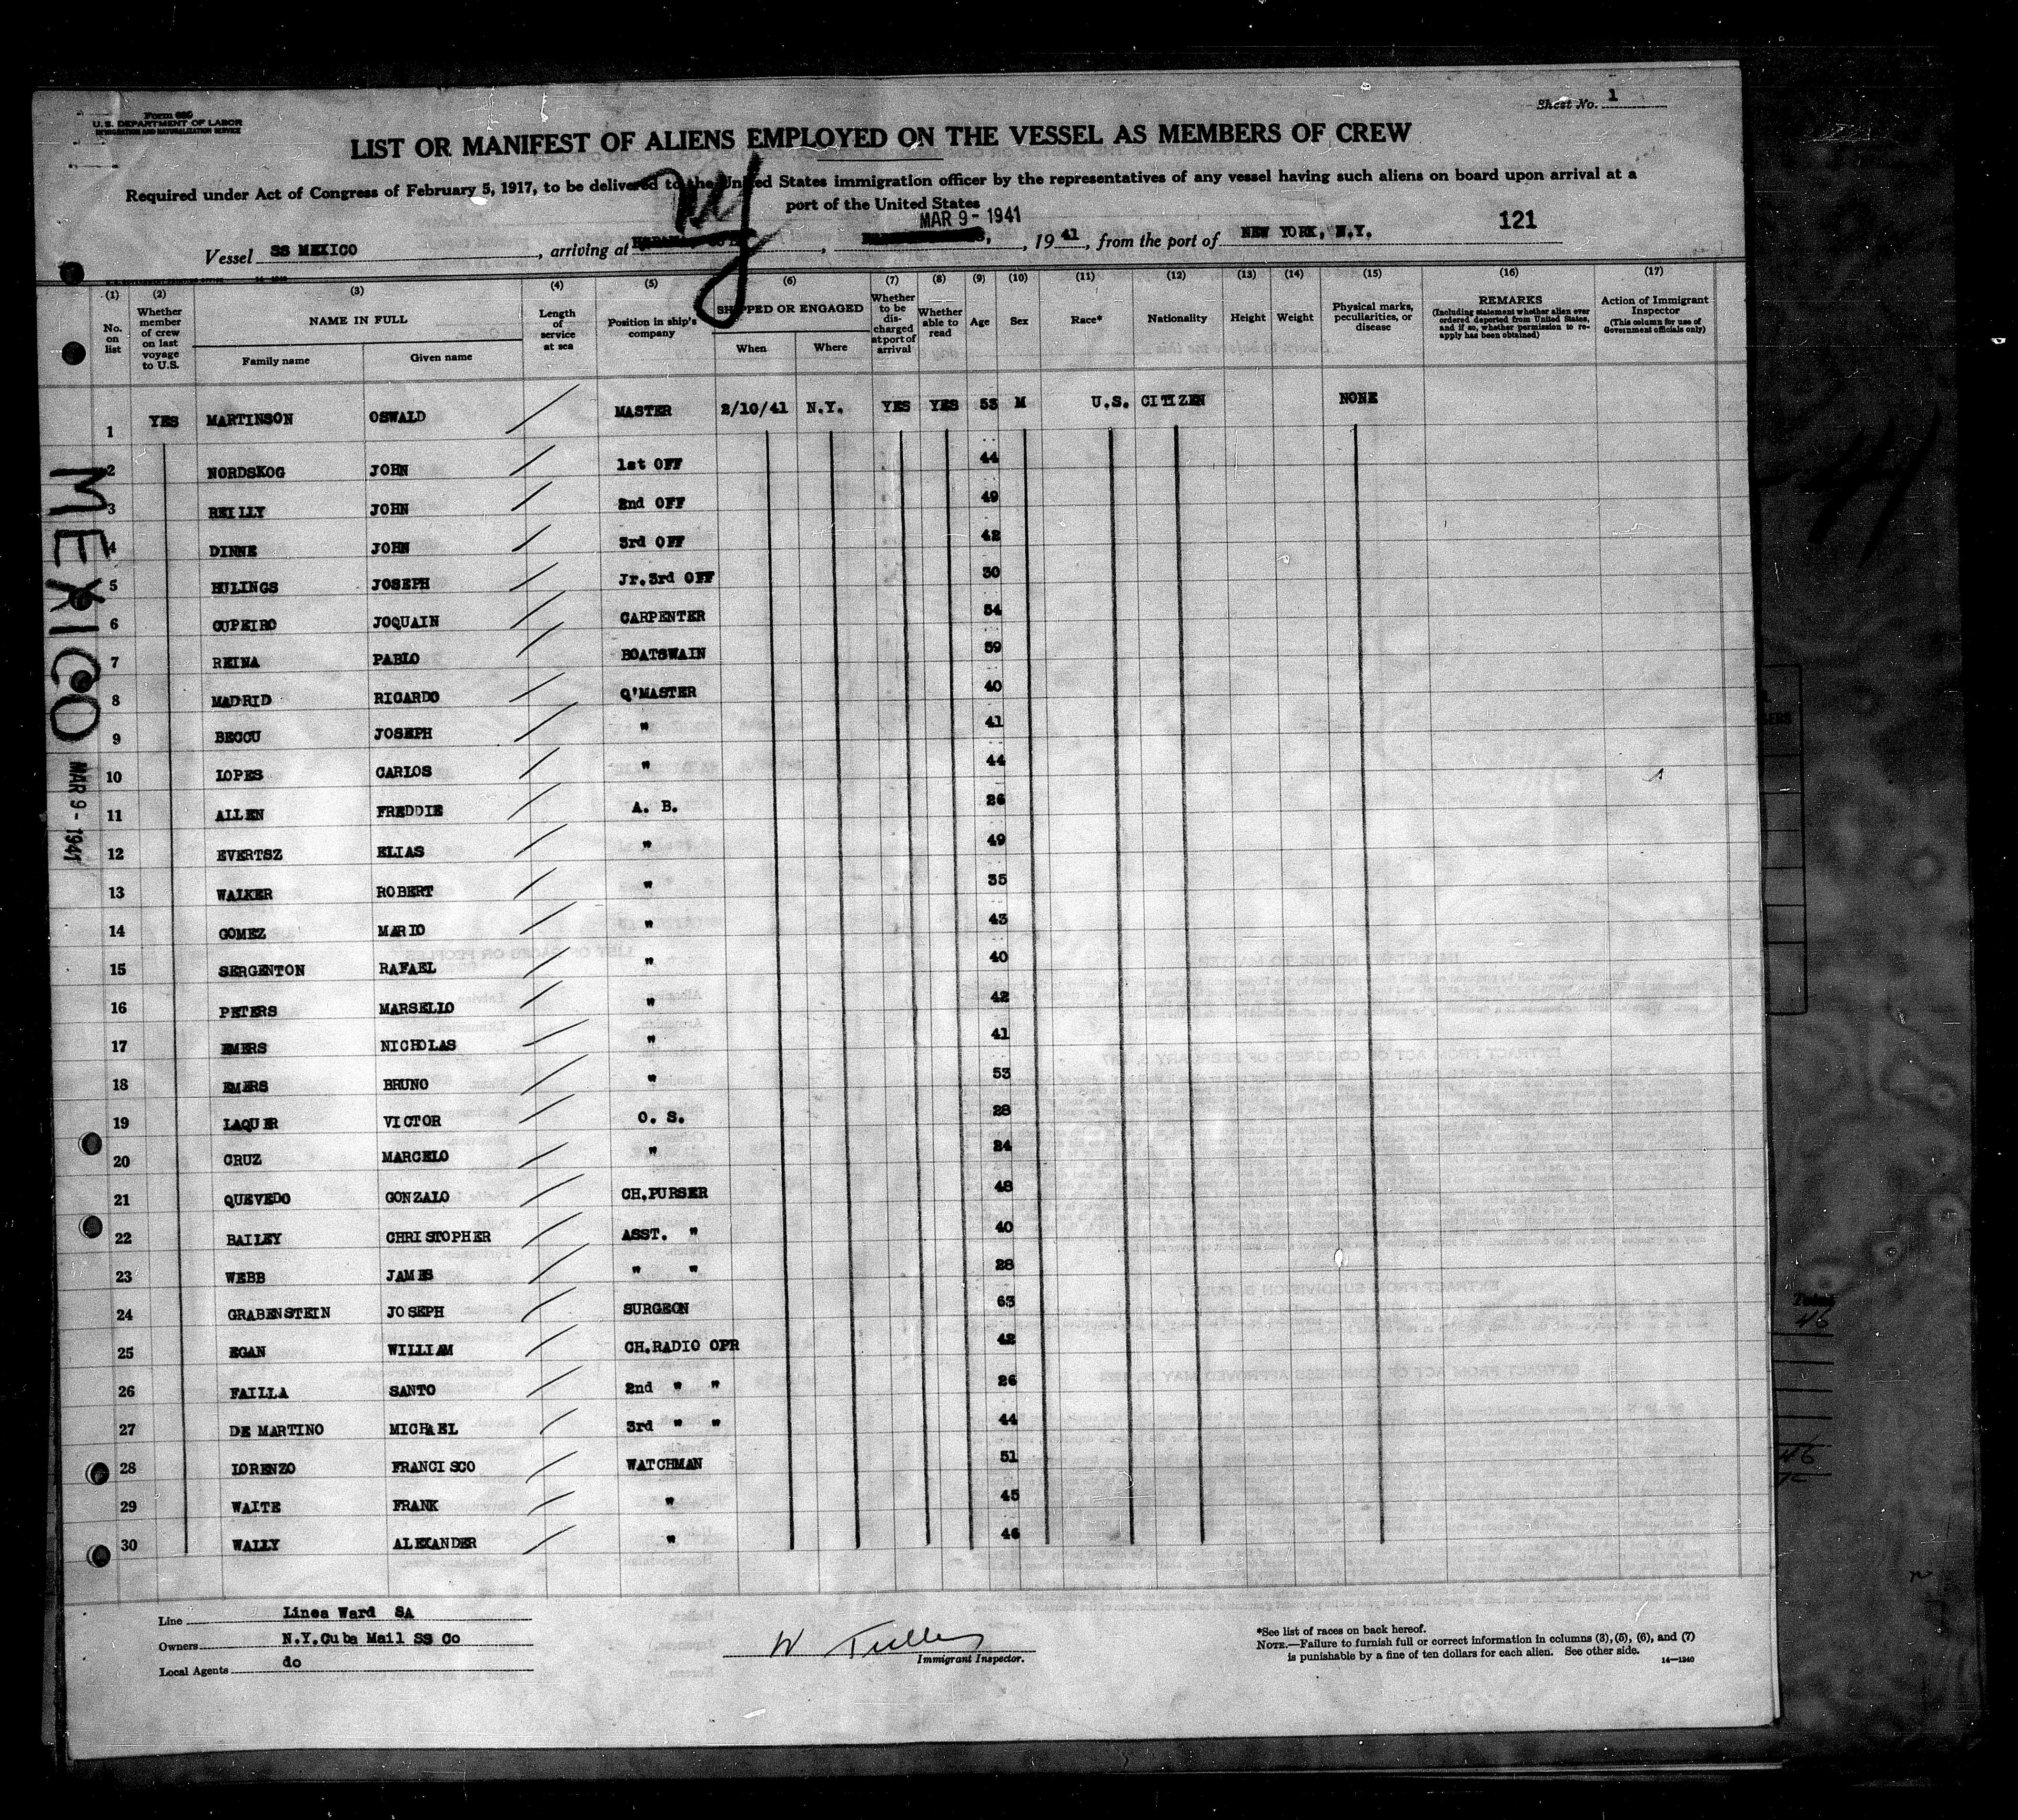 Sheet No. 1
Form 680
U. S. DEPARTMENT OF LABOR
IMMIGRATION AND NATURALIZATION SERVICE
LIST OR MANIFEST OF ALIENS EMPLOYED ON THE VESSEL AS MEMBERS OF CREW
Required under Act of Congress of February 5, 1917, to be delivered to the United States immigration officer by the representatives of any vessel having such aliens on board upon arrival at a
port of the United States
NY
MAR 9 - 1941
121
Vessel SS MEXICO, arriving at , , 19 41, from the port of NEW YORK, N.Y.
(1) (2) (3) (4) (5) (6) (7) (8) (9) (10) (11) (12) (13) (14) (15) (16) (17)
No. on list
Whether member of crew on last voyage to U.S.
NAME IN FULL
Family name
Given name
Length of service at sea
Position in ship's company
SHIPPED OR ENGAGED
When
Where
Whether to be discharged at port of arrival
Whether able to read
Age
Sex
Race*
Nationality
Height
Weight
Physical marks, peculiarities, or disease
REMARKS
(Including statement whether alien ever ordered deported from United States, and if so, whether permission to reapply has been obtained)
Action of Immigrant Inspector
(This column for use of Government officials only)
1 YES MARTINSON OSWALD MASTER 2/10/41 N.Y. YES YES 53 M U.S. CITIZEN NONE
2 NORDSKOG JOHN 1st OFF 44
3 REILLY JOHN 2nd OFF 49
4 DINNE JOHN 3rd OFF 42
5 HULINGS JOSEPH Jr.3rd OFF 30
6 CUPEIRO JOQUAIN CARPENTER 54
7 REINA PABLO BOATSWAIN 39
8 MADRID RICARDO Q'MASTER 40
9 BECCU JOSEPH " 41
10 LOPES CARLOS " 44
11 ALLEN FREDDIE A. B. 26
12 EVERTSZ ELIAS " 49
13 WALKER ROBERT " 35
14 GOMEZ MARIO " 43
15 SERGENTON RAFAEL " 40
16 PETERS MARSELLO " 42
17 EMERS NICHOLAS " 41
18 EMERS BRUNO " 53
19 LAQUER VICTOR O. S. 28
20 CRUZ MARCELO " 24
21 QUEVEDO GONZALO CH.PURSER 48
22 BAILEY CHRISTOPHER ASST. " 40
23 WEBB JAMES " " 28
24 GRABENSTEIN JOSEPH SURGEON 63
25 EGAN WILLIAM CH.RADIO OPR 42
26 FAILLA SANTO 2nd " " 26
27 DE MARTINO MICHAEL 3rd " " 44
28 LORENZO FRANCISCO WATCHMAN 51
29 WAITE FRANK " 45
30 WALLY ALEXANDER " 46
MEXICO
MAR 9 - 1941
Line Linea Ward SA
Owners N.Y.Cuba Mail SS Co
Local Agents do
W
Immigrant Inspector.
*See list of races on back hereof.
NOTE.—Failure to furnish full or correct information in columns (3), (5), (6), and (7)
is punishable by a fine of ten dollars for each alien. See other side.
14—1240